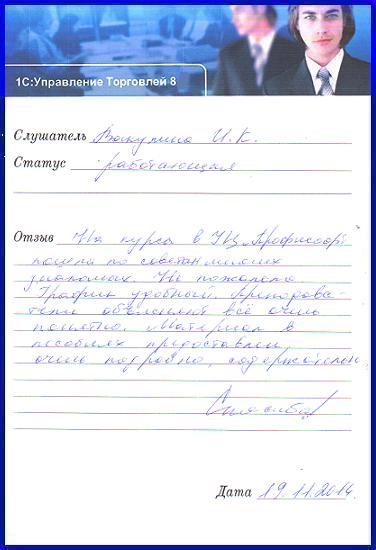 1С:Управление Торговлей 8
Слушатель Вакулина И.К.
Статус работающая
Отзыв На курсы в УЦ „Профисофт"
пошла по советам многих
знакомых. Не пожалела.
График удобный. Преподава
тели объясняют всё очень
понятно. Материал в
пособиях предоставлен
очень подробно, содержательн
Спасибо
Дата 19.11.2014.